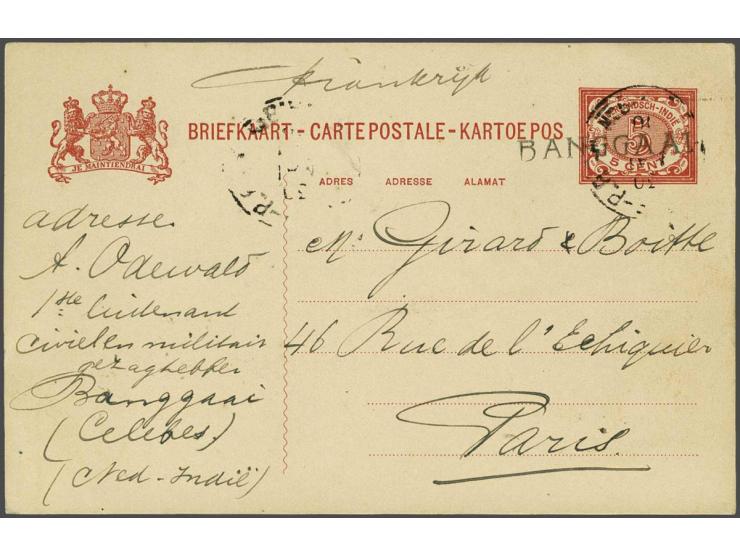 Frankrijk
BRIEFKAART - CARTE POSTALE - KARTOE POS
JE MAINTIENDRAI
5
5 CENT
BANGGAAI
ADRES ADRESSE ALAMAT
adresse
A. Odewald
1ste luitenant
civiel en militair
gezaghebber
Banggaai
(Celebes)
(Ned-Indië)
M. Girard & Boitte
46 Rue de l'Echiquier
Paris